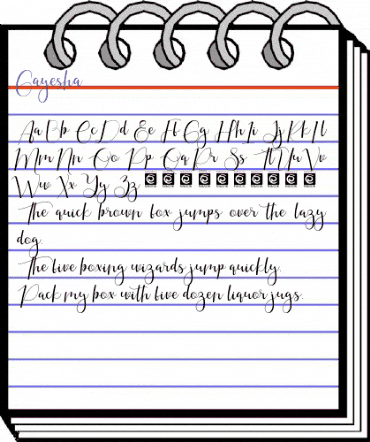 Gayesha
Aa Bb Cc Dd Ee Ff Gg Hh Ii Jj Kk Ll
Mm Nn Oo Pp Qq Rr Ss Tt Uu Vv
Ww Xx Yy Zz
The quick brown fox jumps over the lazy
dog.
The five boxing wizards jump quickly.
Pack my box with five dozen liquor jugs.